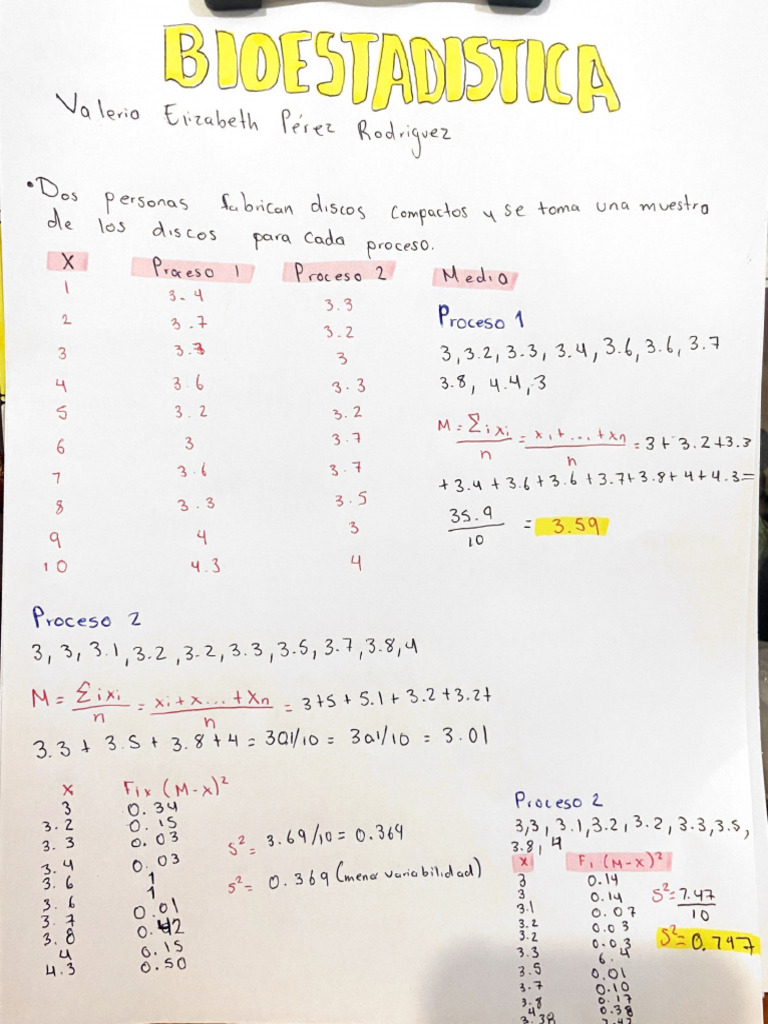 BIOESTADISTICA
Valeria Elizabeth Pérez Rodriguez
• Dos personas fabrican discos compactos y se toma una muestra
de los discos para cada proceso.
X Proceso 1 Proceso 2
1 3.4 3.3
2 3.7 3.2
3 3.3 3
4 3.6 3.3
5 3.2 3.2
6 3 3.7
7 3.6 3.7
8 3.3 3.5
9 4 3
10 4.3 4
Media
Proceso 1
3, 3.2, 3.3, 3.4, 3.6, 3.6, 3.7
3.8, 4.4, 3
M = Σixi/n = xi+...+xn/n = 3 + 3.2 + 3.3
+ 3.4 + 3.6 + 3.6 + 3.7 + 3.8 + 4 + 4.3 =
35.9/10 = 3.59
Proceso 2
3, 3, 3.1, 3.2, 3.2, 3.3, 3.5, 3.7, 3.8, 4
M = Σixi/n = xi+x...+xn/n = 3+5+5.1+3.2+3.2+
3.3 + 3.5 + 3.8 + 4 = 301/10 = 301/10 = 3.01
X Fix (M-x)²
3 0.34
3.2 0.15
3.3 0.03
3.4 0.03
3.6 1
3.6 1
3.7 0.01
3.8
4 0.15
4.3 0.50
S² = 3.69/10 = 0.369
S² = 0.369 (menor variabilidad)
Proceso 2
3,3, 3.1,3.2, 3.2, 3.3,3.5,
3.8, 4
X Fi (M-x)²
3 0.14
3 0.14
3.1 0.07
3.2 0.03
3.2 0.03
3.3 6.4
3.5 0.01
3.7 0.10
3.8 0.17
4 0.38
3.38
S² = 7.47/10
S² = 0.747